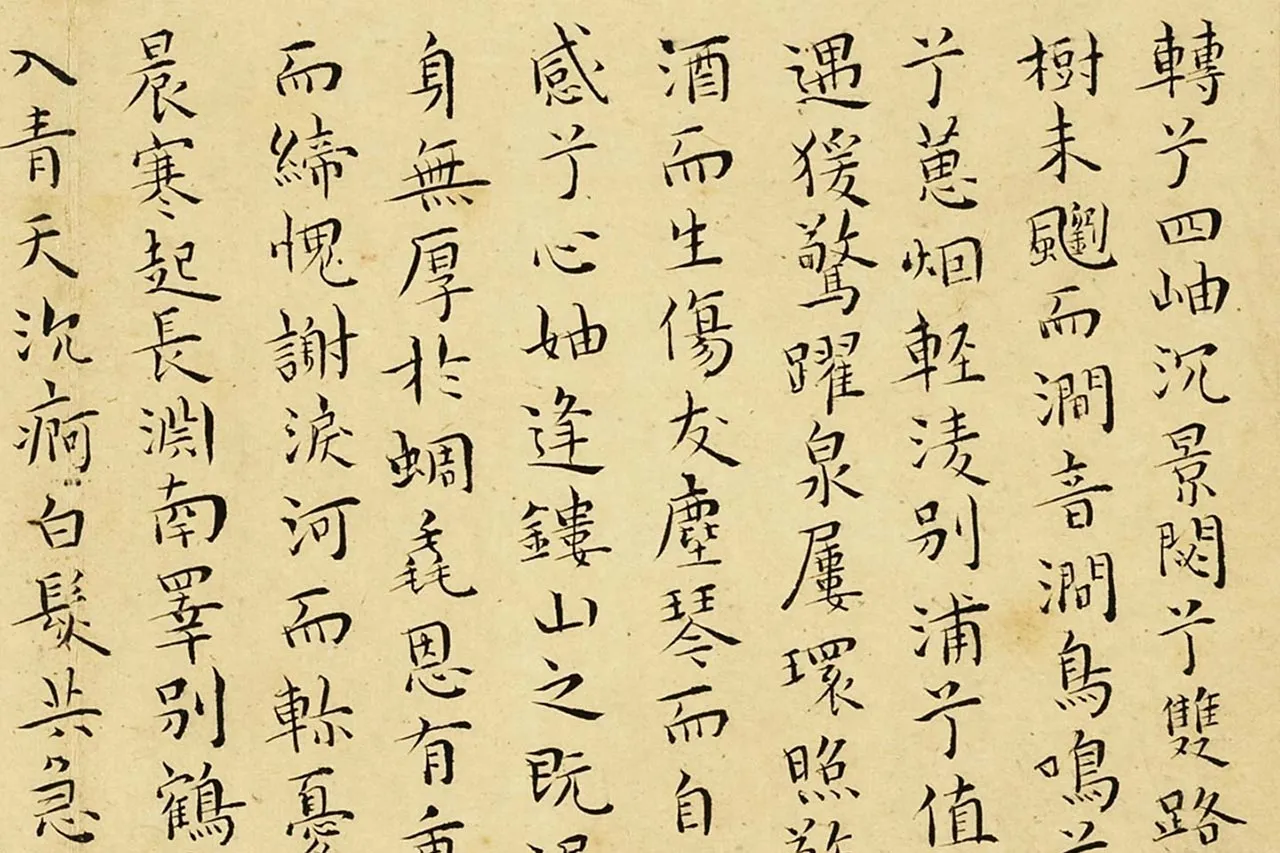 轉兮四岫沉景閟兮雙路
樹未飀而澗音澗鳥鳴
兮蔥烟軽淩别浦兮值
遇猨驚躍泉屢環照
酒而生傷友塵琴而自
感兮心妯逢鏤山之既
身無厚於蜩毳恩有重
而締愧謝淚河而軫憂
晨寒起長淵南睪别鶴
入青天沉痾白髮共急